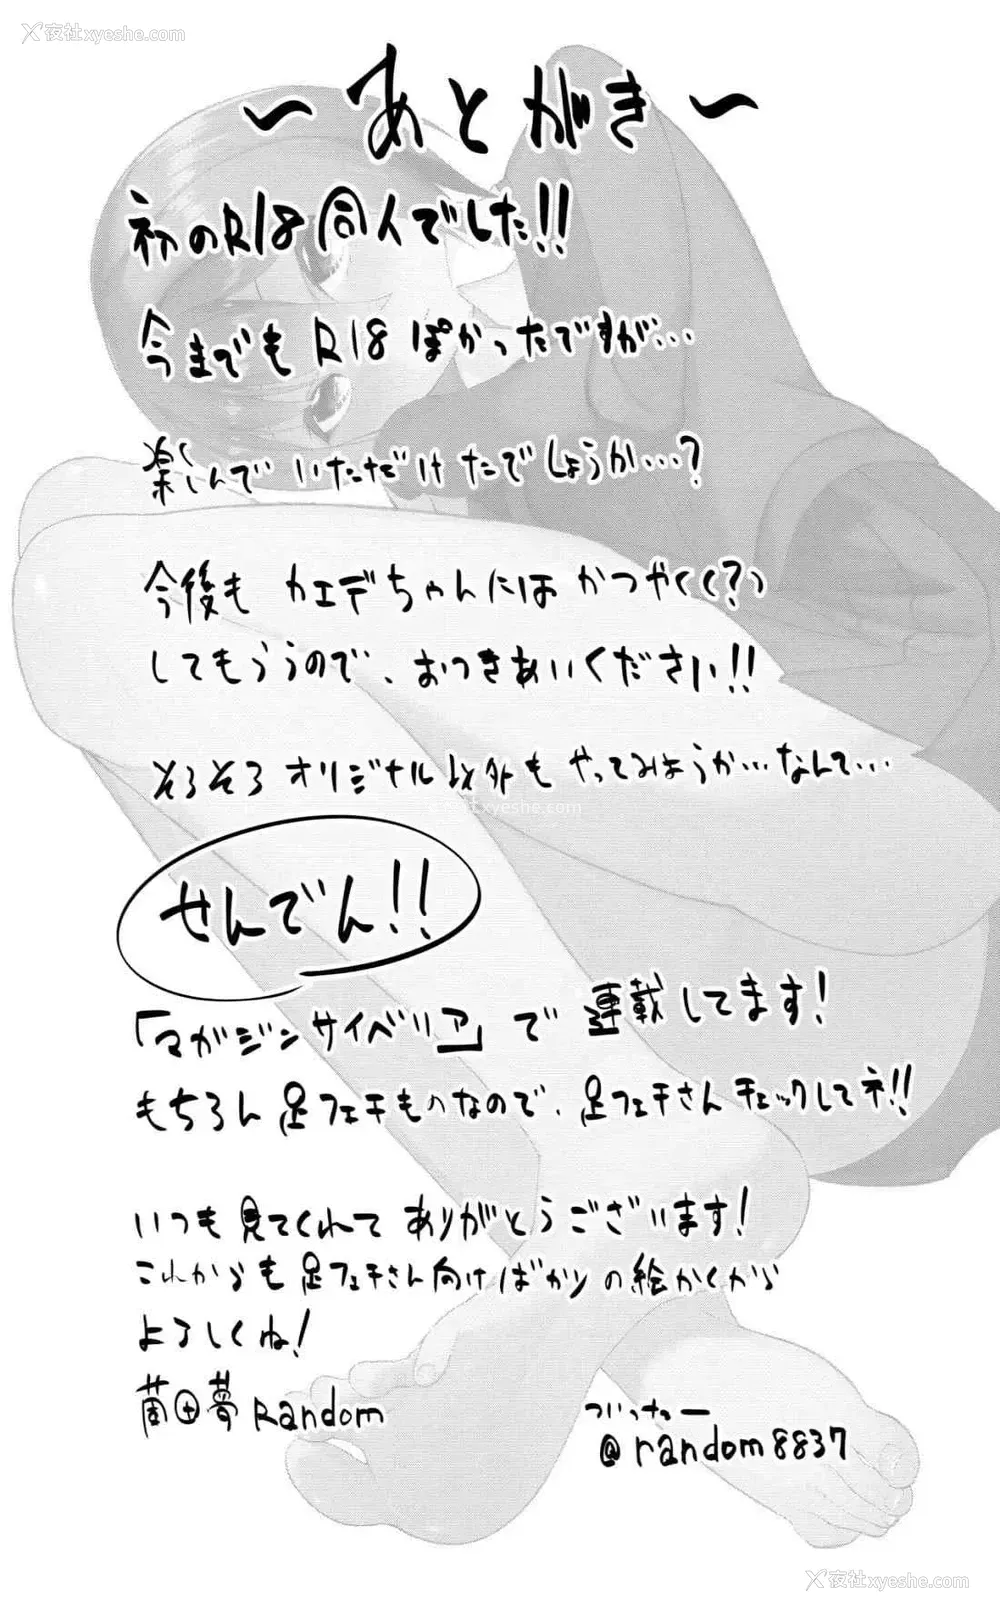 夜社xyeshe.com
～あとがき～
初のR18同人でした!!
今までもR18ぽかったですが…
楽しんでいただけたでしょうか…?
今後もカエデちゃんにはかつやく(?)
してもらうので、おつきあいください!!
そろそろオリジナル以外もやってみようか…なんて…
夜社xyeshe.com
せんでん!!
「マガジンサイベリア」で連載してます!
もちろん足フェチものなので、足フェチさんチェックしてネ!!
いつも見てくれてありがとうございます!
これからも足フェチさん向けばかりの絵かくから
よろしくね!
田夢Random
ついったー
@random8837
夜社xyeshe.com